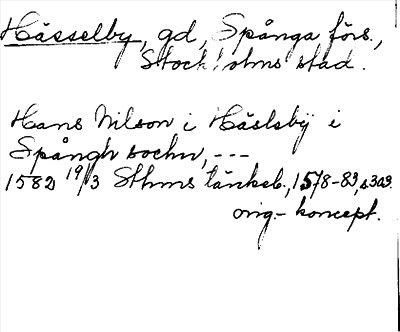 Hässelby, gd, Spånga förs.,
Stockholms stad.
Hans Nilson i Häslebÿ i
Spångh sochn, ---
1582 19/3 Sthms tänkeb., 1578-83, s. 303.
orig.- koncept.